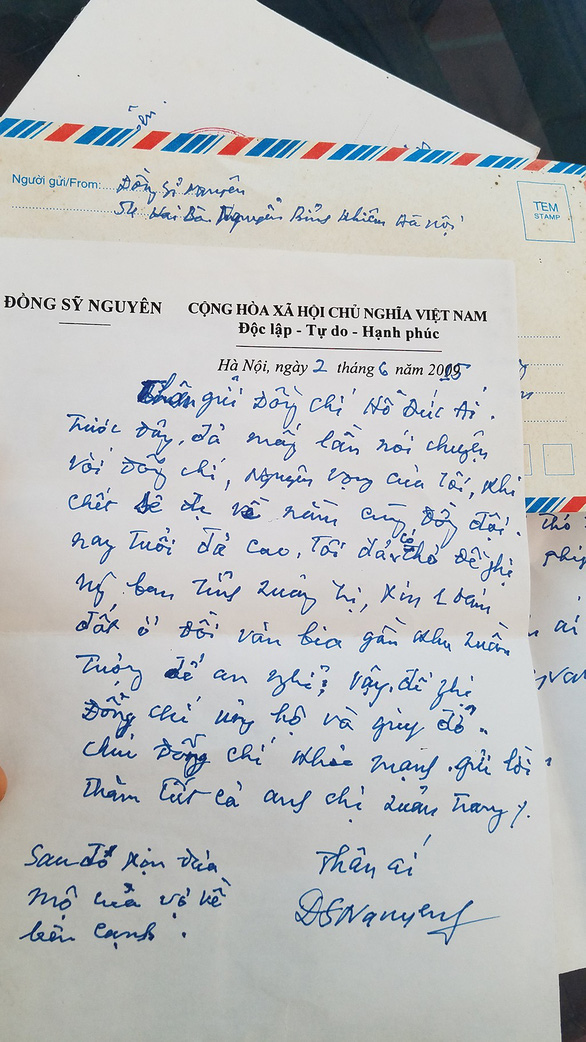 Người gửi/From: Đồng Sĩ Nguyên
54 Hai Bà Nguyễn Bỉnh Khiêm Hà Nội
TEM
STAMP
ĐỒNG SỸ NGUYÊN
CỘNG HÒA XÃ HỘI CHỦ NGHĨA VIỆT NAM
Độc lập - Tự do - Hạnh phúc
Hà Nội, ngày 2 tháng 6 năm 2015
Thân gửi Đồng chí Hồ Đức Ái.
Trước đây, đã mấy lần nói chuyện
với đồng chí, nguyện vọng của tôi, khi
chết sẽ về nằm cùng đồng đội.
nay tuổi đã cao, tôi đã có thơ đề nghị
Uỷ ban Tỉnh Quảng Trị, xin 1 đám
đất ở đồi văn bia gần khu Quần
tượng để an nghỉ; vậy đề nghị
Đồng chí ủng hộ và giúp đỡ.
chúc Đồng chí khỏe mạng. gửi lời
thăm tất cả anh chị Quân trang
Thân ái
DSNguyen
Sau đó xin đưa
mộ của vợ về
bên cạnh.
Thơ
ai